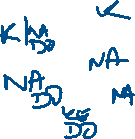 K
K/M
DO
NA
NA
DO
NA
KE
DO